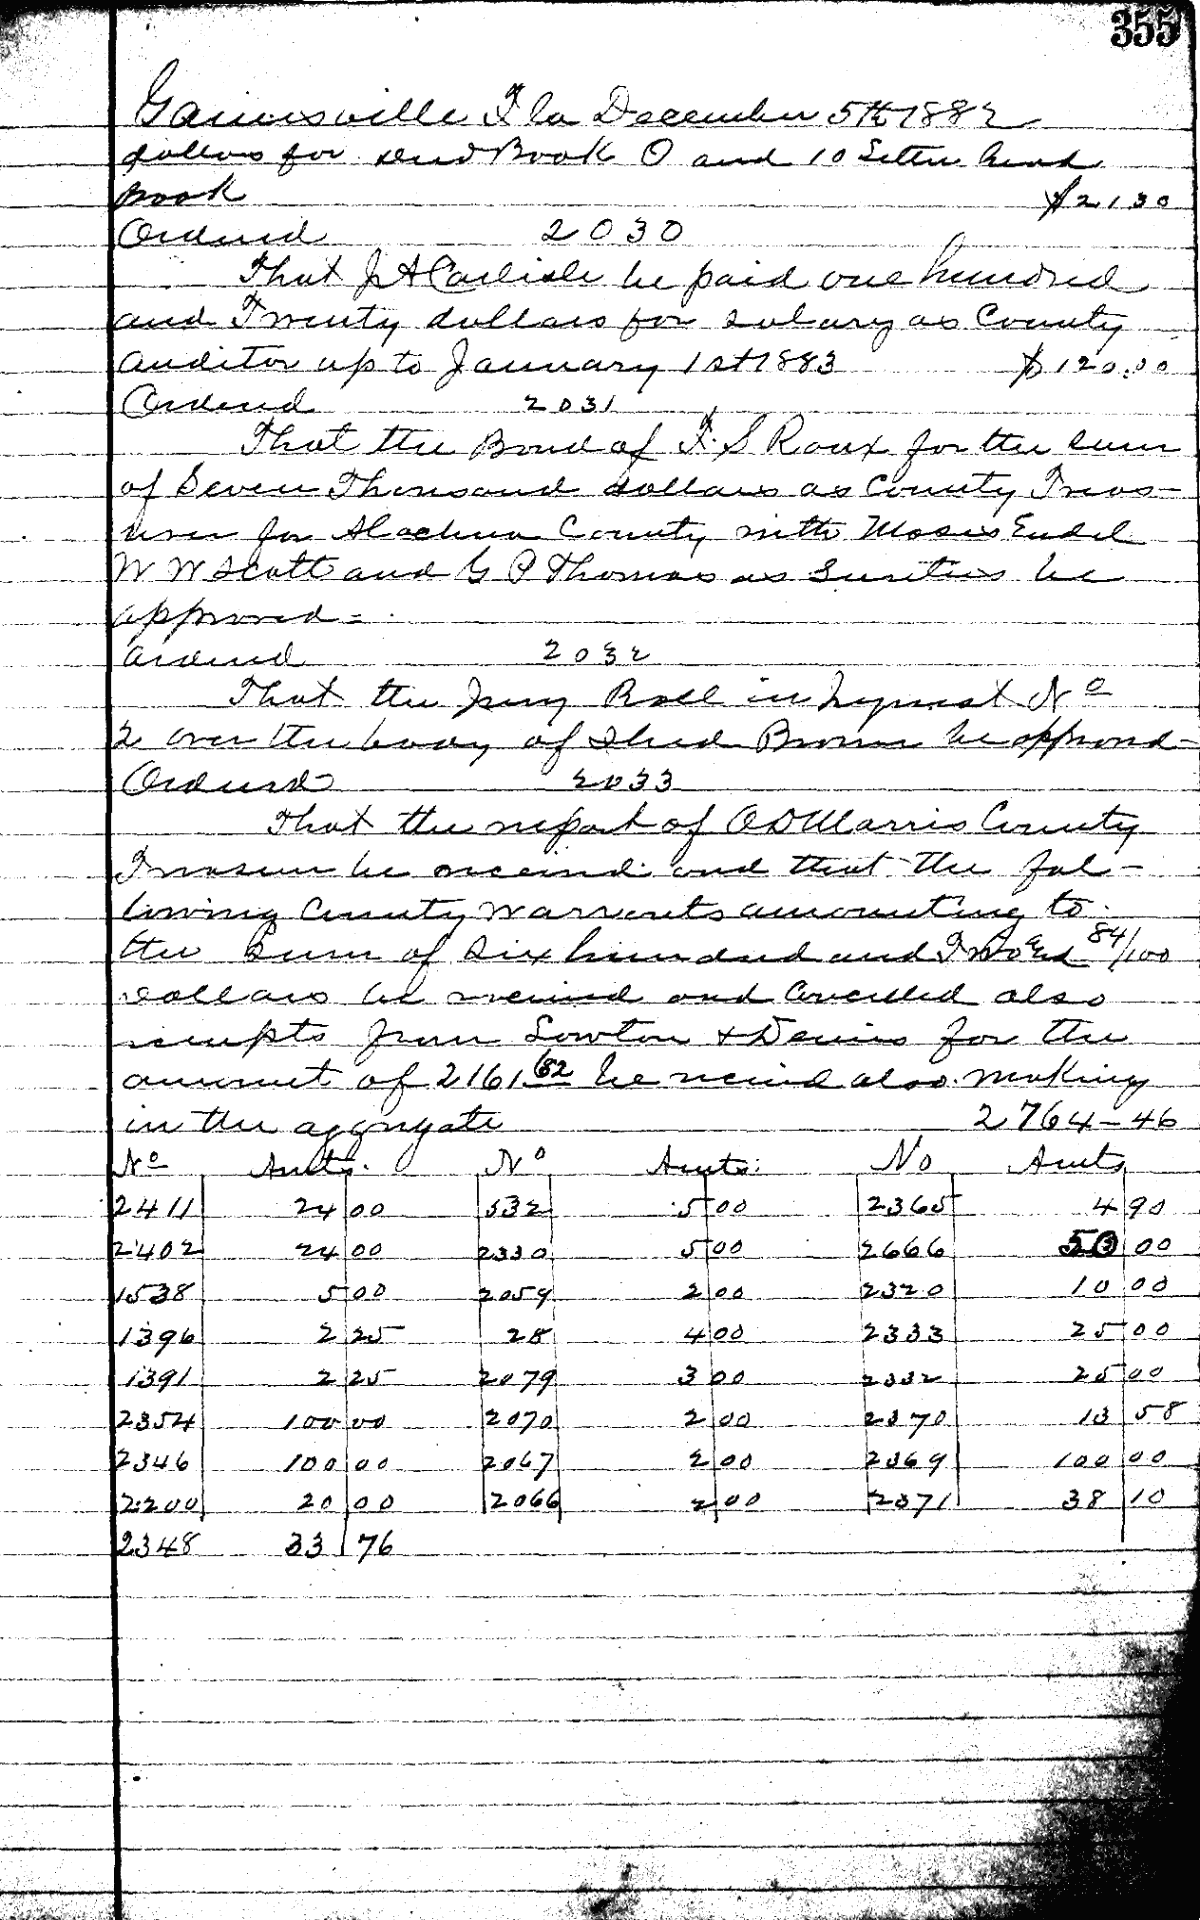 355
Gainesville Fla December 5th 1882
dollars for deed Book O and 10 Letter head
Book $21 30
Ordered 2030
That J A Carlisle be paid one hundred
and Twenty dollars for salary as County
auditor up to January 1st 1883 $120.00
Ordered 2031
That the Bond of F. S Roux for the sum
of Seven Thousand dollars as County Treas-
urer for Alachua County with Moses Endel
W W Scott and G P Thomas as Sureties be
approved =
Ordered 2032
That the Jury Roll in Inquest No
2 over the body of Shed Brown be approved -
Ordered 2033
That the report of O D Marris County
Treasurer be received and that the fol -
lowing County Warrants amounting to
the Sum of Six hundred and Two & 84/100
Dollars be received and Cancelled also
receipts from Lowton & Dennis for the
amount of 2161 62 be recived also making
in the aggregate 2764 - 46
No Amts. No Amts: No Amts
2411 24 00 532 5 00 2365 4 90
2402 24 00 2330 5 00 2666 50 00
1538 5 00 2059 2 00 2320 10 00
1396 2 25 28 4 00 2333 25 00
1391 2 25 2079 3 00 2332 25 00
2354 100 00 2070 2 00 2370 13 58
2346 100 00 2067 2 00 2369 100 00
2200 20 00 2066 2 00 2371 38 10
2348 33 76